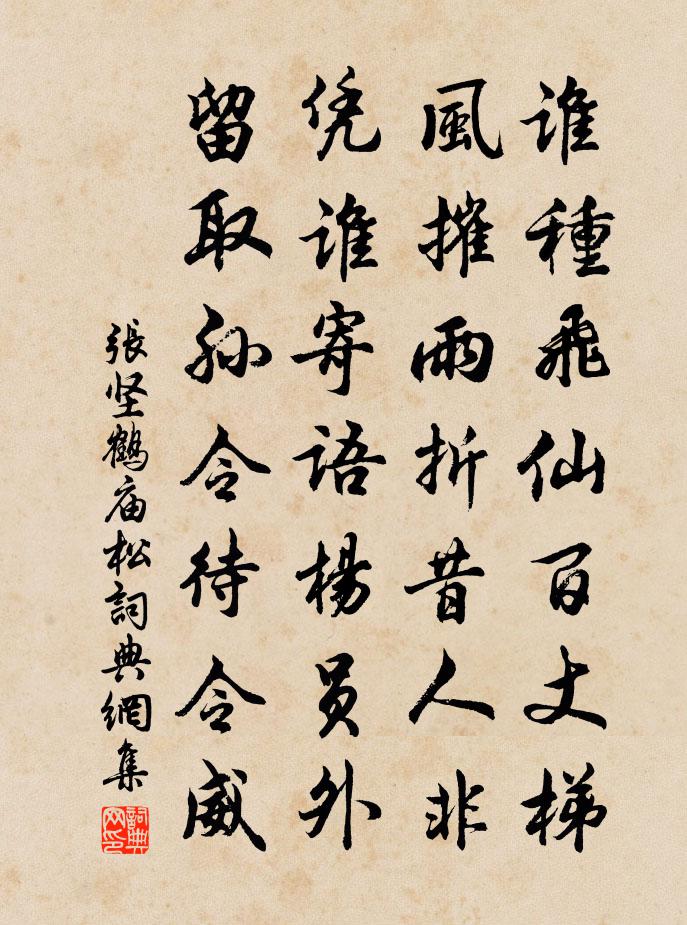 谁種飛仙百丈梯
風摧雨折昔人非
凭谁寄語楊員外
留取孙令待令威
張坚鶴庙松詞典網集
詞典网印